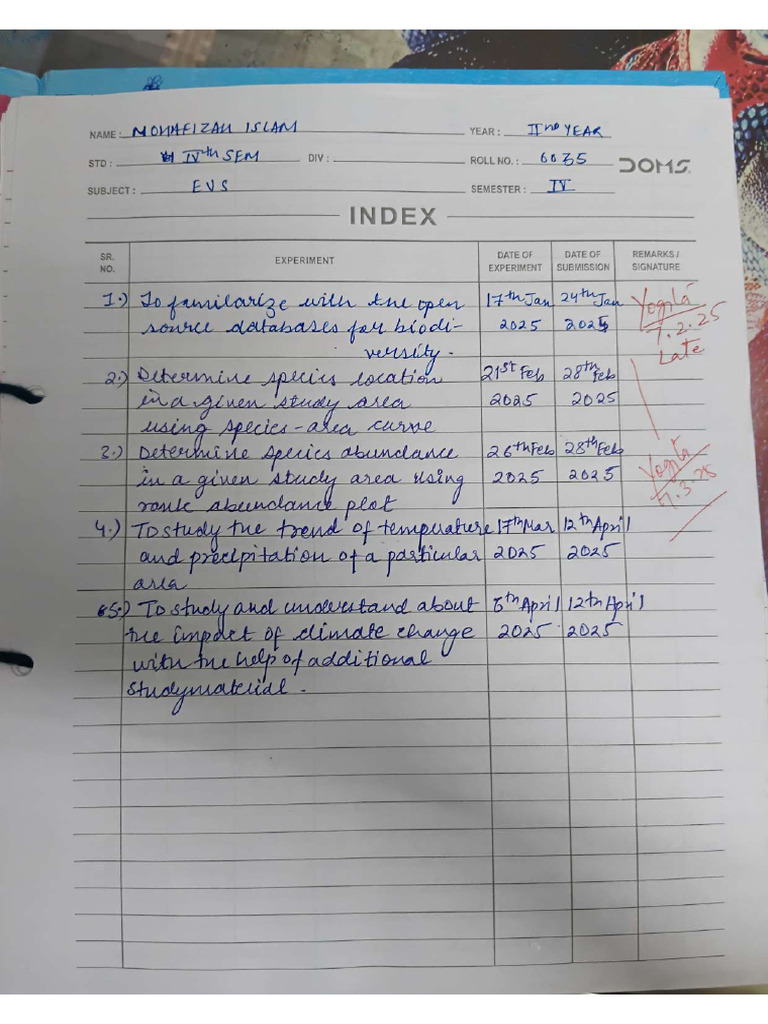 NAME : MOHAFIZAH ISLAM YEAR : IInd YEAR
STD : IVth SEM DIV : ROLL NO. : 6035 DOMS
SUBJECT : EVS SEMESTER : IV
INDEX
SR. NO. EXPERIMENT DATE OF EXPERIMENT DATE OF SUBMISSION REMARKS / SIGNATURE
1.) To familarize with the open 17th Jan 24th Jan Yogita
source databases for biodi- 2025 2025 7.2.25
versity. Late
2.) Determine species location 21st Feb 28th Feb
in a given study area 2025 2025
using species-area curve
3.) Determine species abundance 26th Feb 28th Feb Yogita
in a given study area using 2025 2025 7.3.25
rank abundance plot
4.) To study the trend of temperature 17th Mar 12th April
and precipitation of a particular 2025 2025
area
5.) To study and understand about 6th April 12th April
the impact of climate change 2025 2025
with the help of additional
studymaterial.